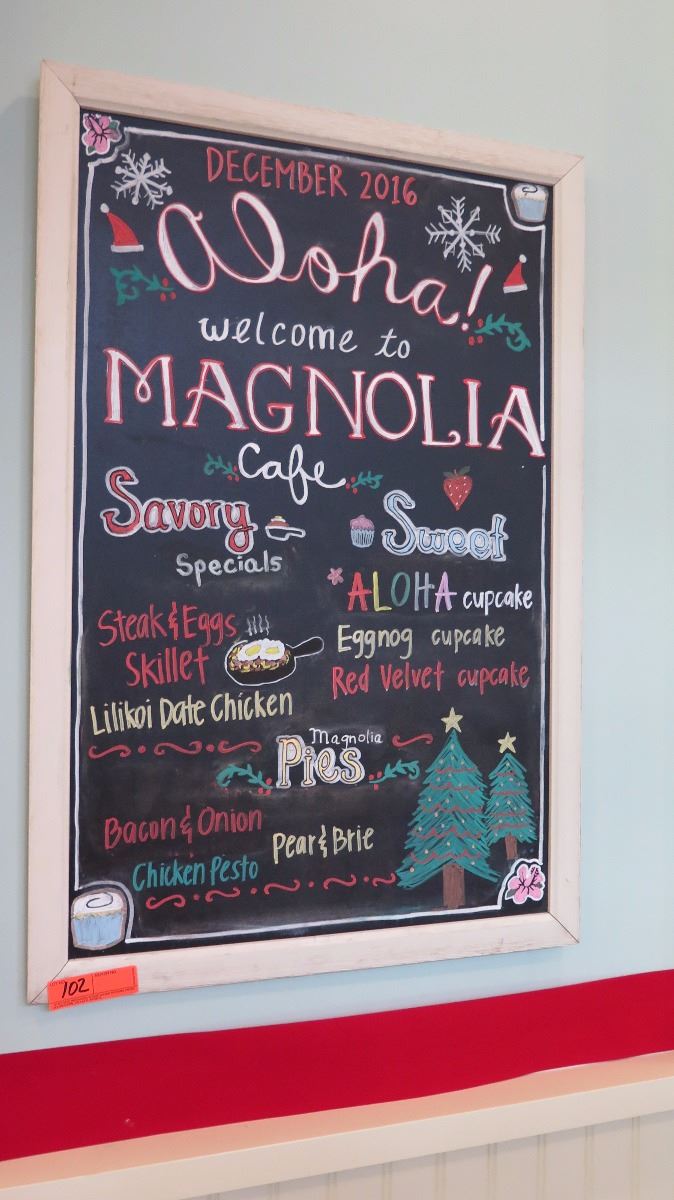 DECEMBER 2016
Aloha!
welcome to
MAGNOLIA
Cafe
Savory
Specials
Steak & Eggs
Skillet
Lilikoi Date Chicken
Sweet
ALOHA cupcake
Eggnog cupcake
Red Velvet cupcake
Magnolia
Pies
Bacon & Onion
Pear & Brie
Chicken Pesto
102